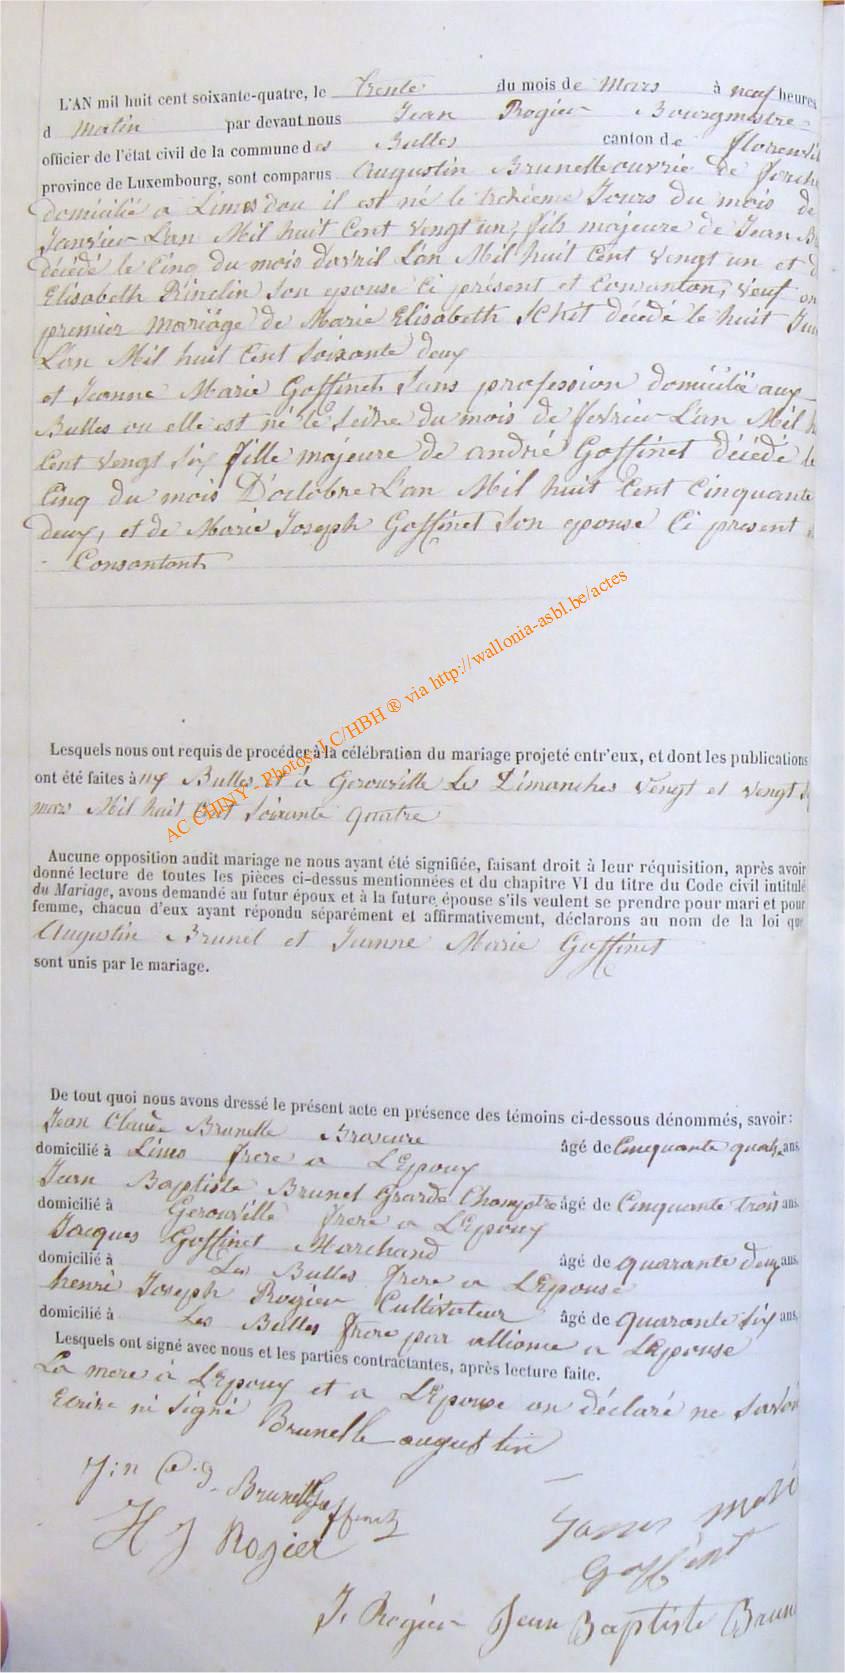 L'AN mil huit cent soixante-quatre, le trente du mois de Mars à neuf heures
d matin par devant nous Jean Rogier Bourgmestre
officier de l'état civil de la commune des Bulles canton de florenvil
province de Luxembourg, sont comparus Augustin Brunelle ouvrie de forche
domicilié a Limes dou il est né le troisième Jours du mois de
Janvier Lan Mil huit Cent vengt un, fils majeure de Jean B
décédé le Cinq du mois Davril L'an Mil huit Cent vengt un et d
Elisabeth son epouse Ci présent et Consantan, veuf en
premier mariage de Marie Elisabeth Schit décédé le huit Jui
L'an Mil huit Cent Soixante deux
et Jeanne Marie Goffinet Sans profession domicilié aux
Bulles ou elle est né le du mois de fevrier L'an Mil h
Cent vengt Six fille majeure de andré Goffinet décédé le
Cinq du mois D'octobre L'an Mil huit Cent Cinquante
deux, et de Marie Joseph Goffinet Son epouse Ci present
Consantant
AC CHINY - Photos: LC/HBH ® via http://wallonia-asbl.be/actes
Lesquels nous ont requis de procéder à la célébration du mariage projeté entr'eux, et dont les publications
ont été faites à Bulles et à Gerouville Les Dimanches vengt et vengt
mars Mil huit Cent Soixante quatre
Aucune opposition audit mariage ne nous ayant été signifiée, faisant droit à leur réquisition, après avoir
donné lecture de toutes les pièces ci-dessus mentionnées et du chapitre VI du titre du Code civil intitulé
du Mariage, avons demandé au futur époux et à la future épouse s'ils veulent se prendre pour mari et pour
femme, chacun d'eux ayant répondu séparément et affirmativement, déclarons au nom de la loi que
Augustin Brunel et Jeanne Marie Goffinet
sont unis par le mariage.
De tout quoi nous avons dressé le présent acte en présence des témoins ci-dessous dénommés, savoir:
Jean Brunelle Braseure âgé de Cinquante quatre ans,
domicilié à Limes frere a L'Epoux
Jean Baptiste Brunel Grarde Champtre âgé de Cinquante trois ans
domicilié à Gerouville frere a L'Epoux
Jacques Goffinet Marchand âgé de quarante deux ans,
domicilié à Les Bulles frere a L'Epouse
henri Joseph Rogier Cultivateur âgé de quarante Six ans,
domicilié à Les Bulles frere par alliance a L'Epouse
Lesquels ont signé avec nous et les parties contractantes, après lecture faite.
La mere à L'Epoux et a L'Epouse on déclaré ne Savoi
Ecrire ni signé
Brunelle augustin
Brunelle
Goffinet
H J Rogier
Goffinet
J. Rogier Jean Baptiste Brun